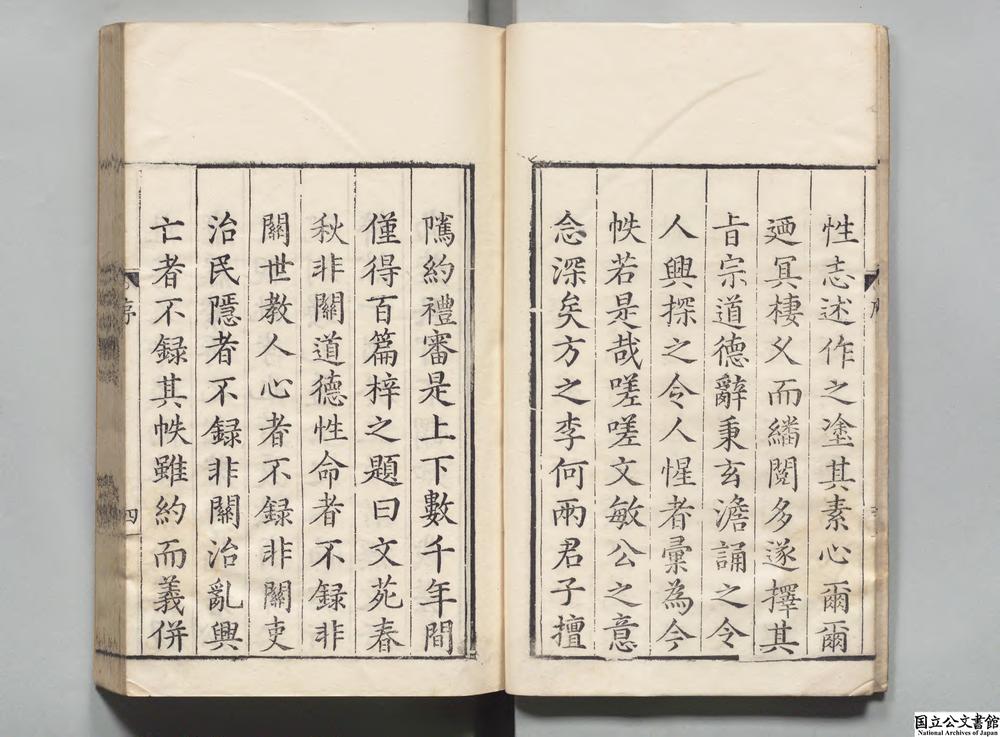 性志述作之塗其素心爾爾
廼冥棲乂而繙閱多遂擇其
旨宗道德辭秉玄澹誦之令
人興探之令人惺者彙為今
帙若是哉嗟嗟文敏公之意
念深矣方之李何兩君子擅
隲約禮審是上下數千年間
僅得百篇梓之題曰文苑春
秋非關道德性命者不録非
關世教人心者不録非關吏
治民隱者不録非關治亂興
亡者不録其帙雖約而義併
序
四
国立公文書館
National Archives of Japan